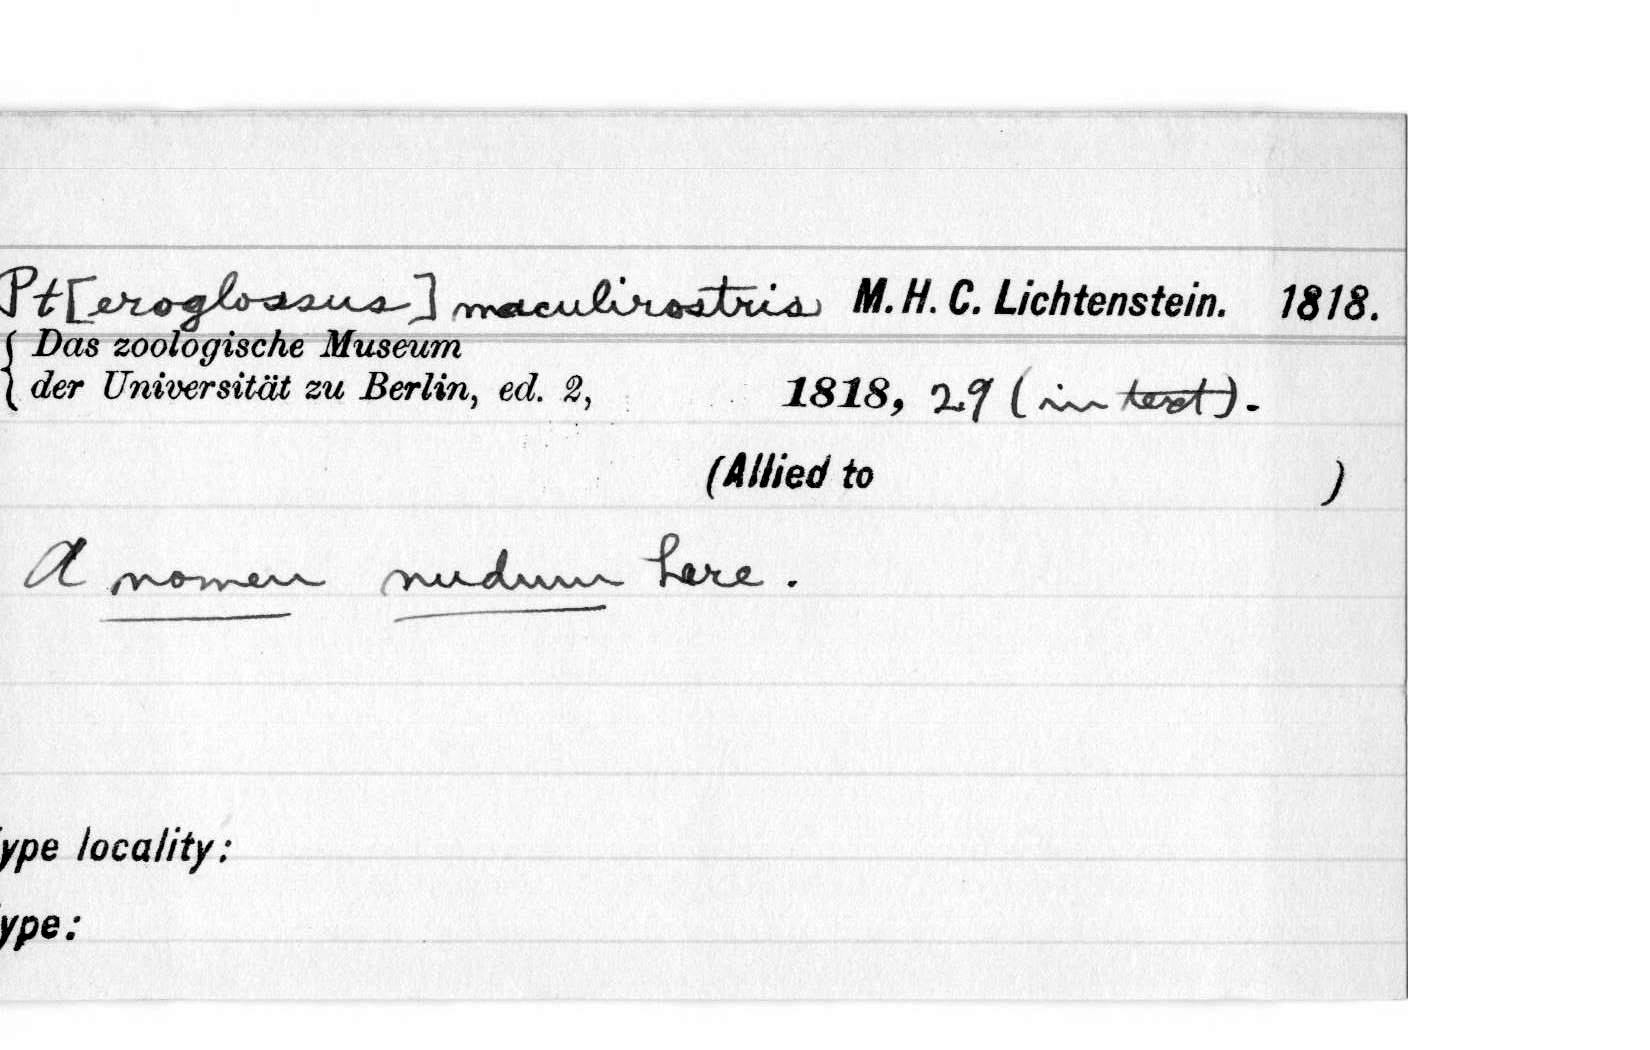 Pt[eroglossus] maculirostris M. H. C. Lichtenstein. 1818.
Das zoologische Museum
der Universität zu Berlin, ed. 2, 1818, 29 (in text).
(Allied to )
A nomen nudum here.
ype locality:
ype: